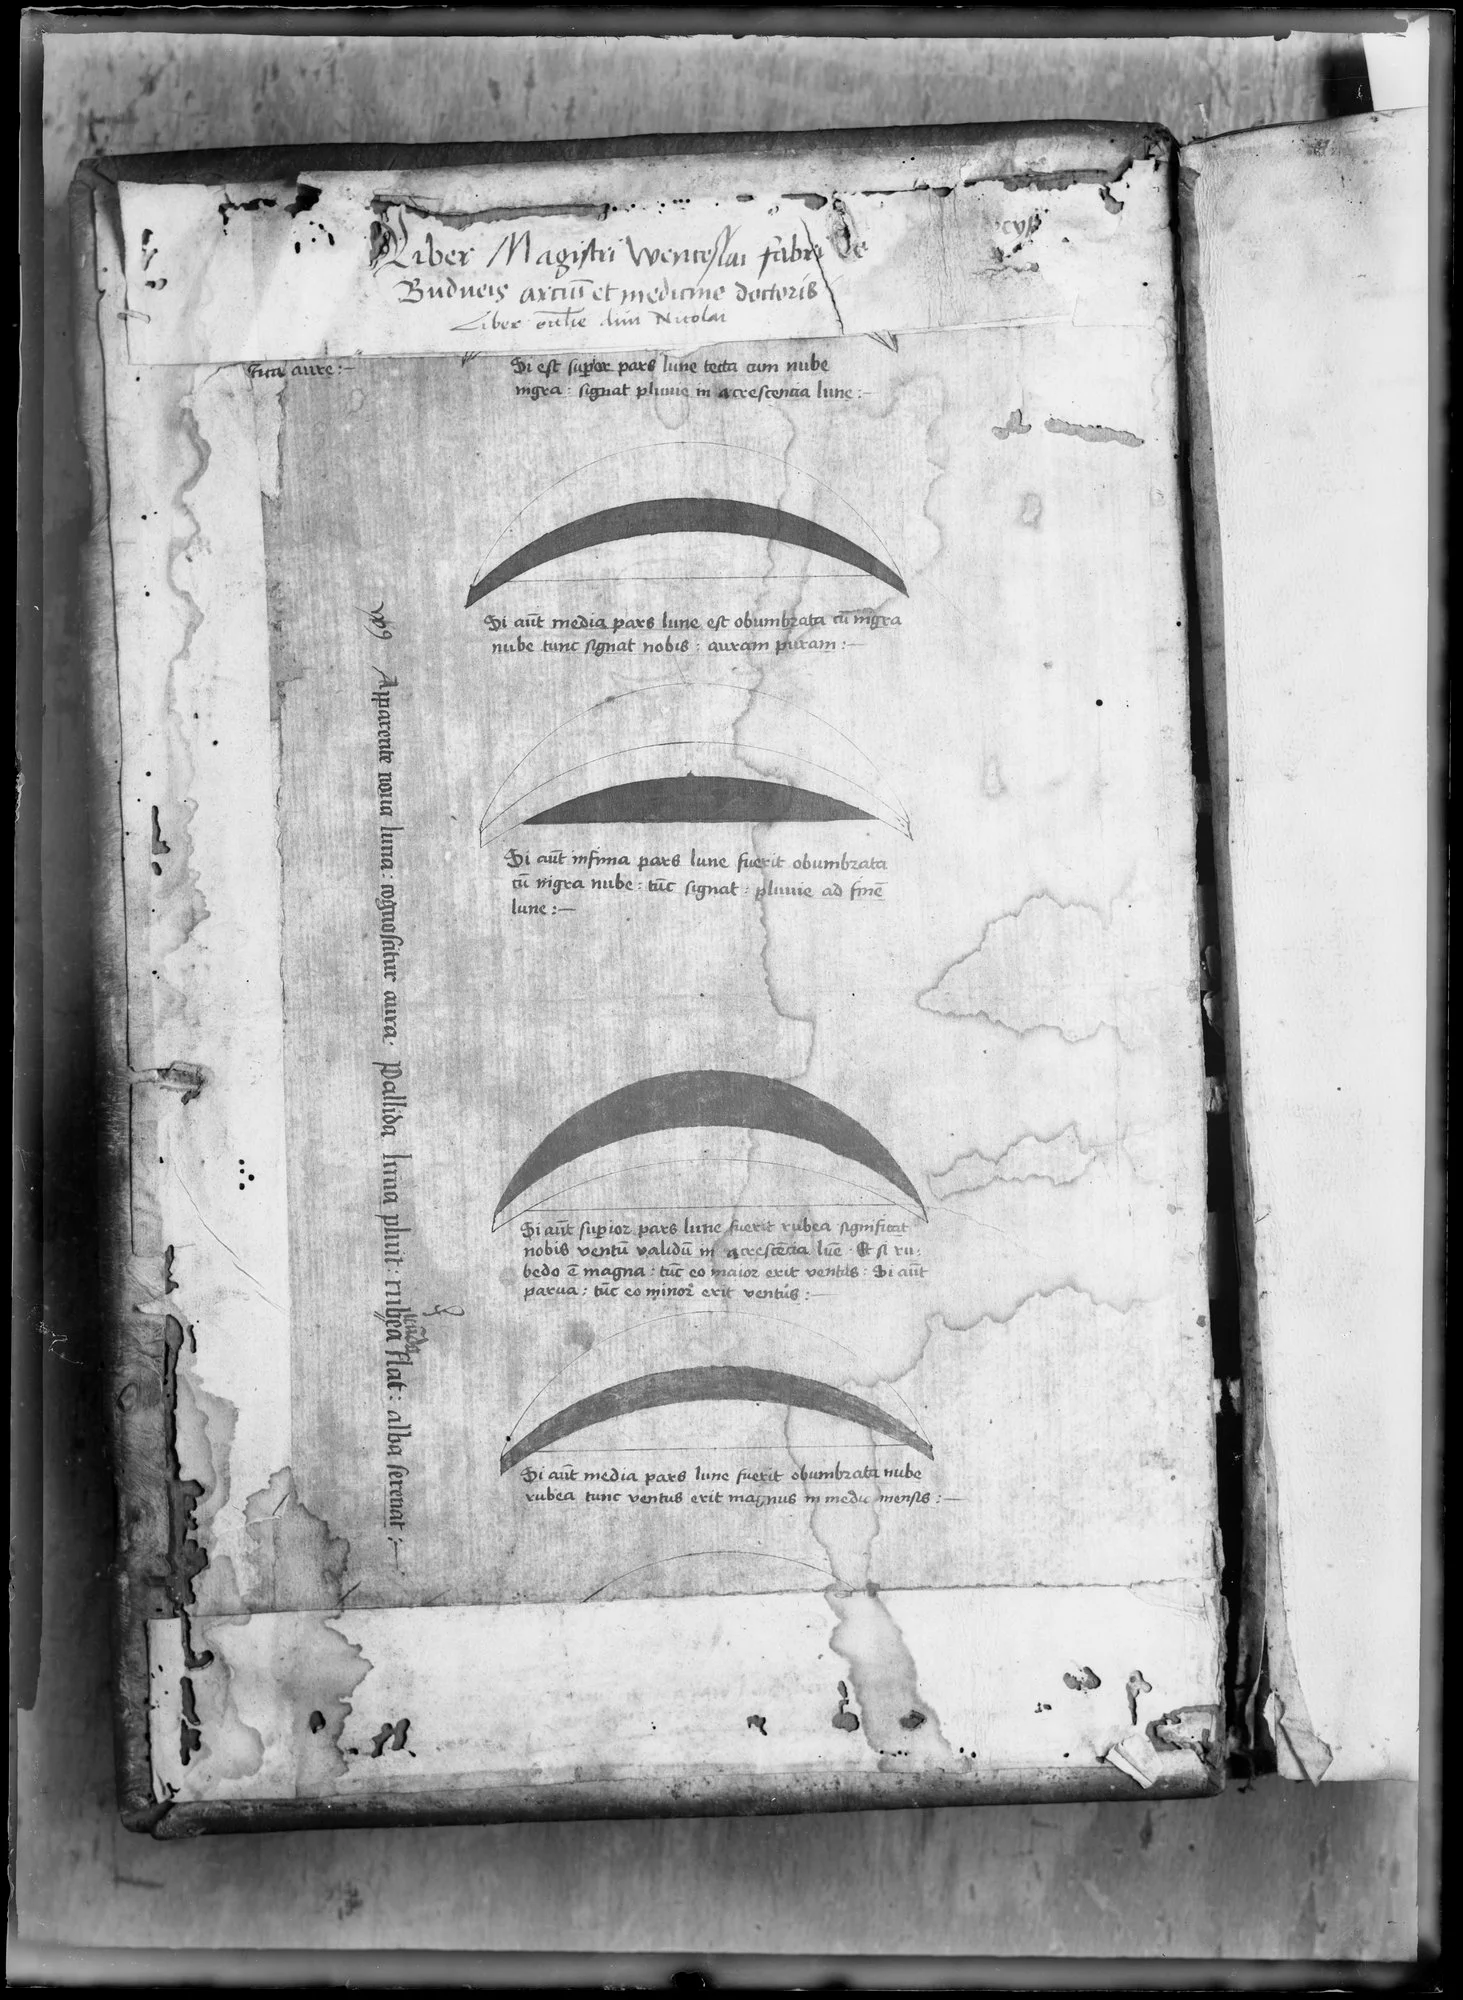 Liber Magistri Wenceslai fabri de
Budueis arciū et medicine doctoris
Liber
aure :-
Si est superior pars lune tecta cum nube
nigra : signat pluuie in acrescencia lune :-
Si aūt media pars lune est obumbrata cū nigra
nube tunc signat nobis : auram puram :-
Si aūt infima pars lune fuerit obumbrata
cū nigra nube : tūc signat : pluuie ad finē
lune :-
Si aūt supior pars lune fuerit rubea significat
nobis ventū validū in acrescēcia lūe · Et si ru-
bedo ē magna : tūc eo maior erit ventus : Si aūt
parua : tūc eo minor erit ventus :-
Si aūt media pars lune fuerit obumbrata nube
rubea tunc ventus erit magnus in medio mensis :-
Apparente noua luna : cognoscitur aura · Pallida luna pluit : rubea flat : alba serenat :-